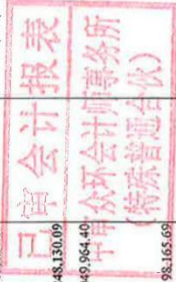 已审会计报表
中审众环会计师事务所
(特殊普通合伙)
48,130.09
49,964.40
98,165.69